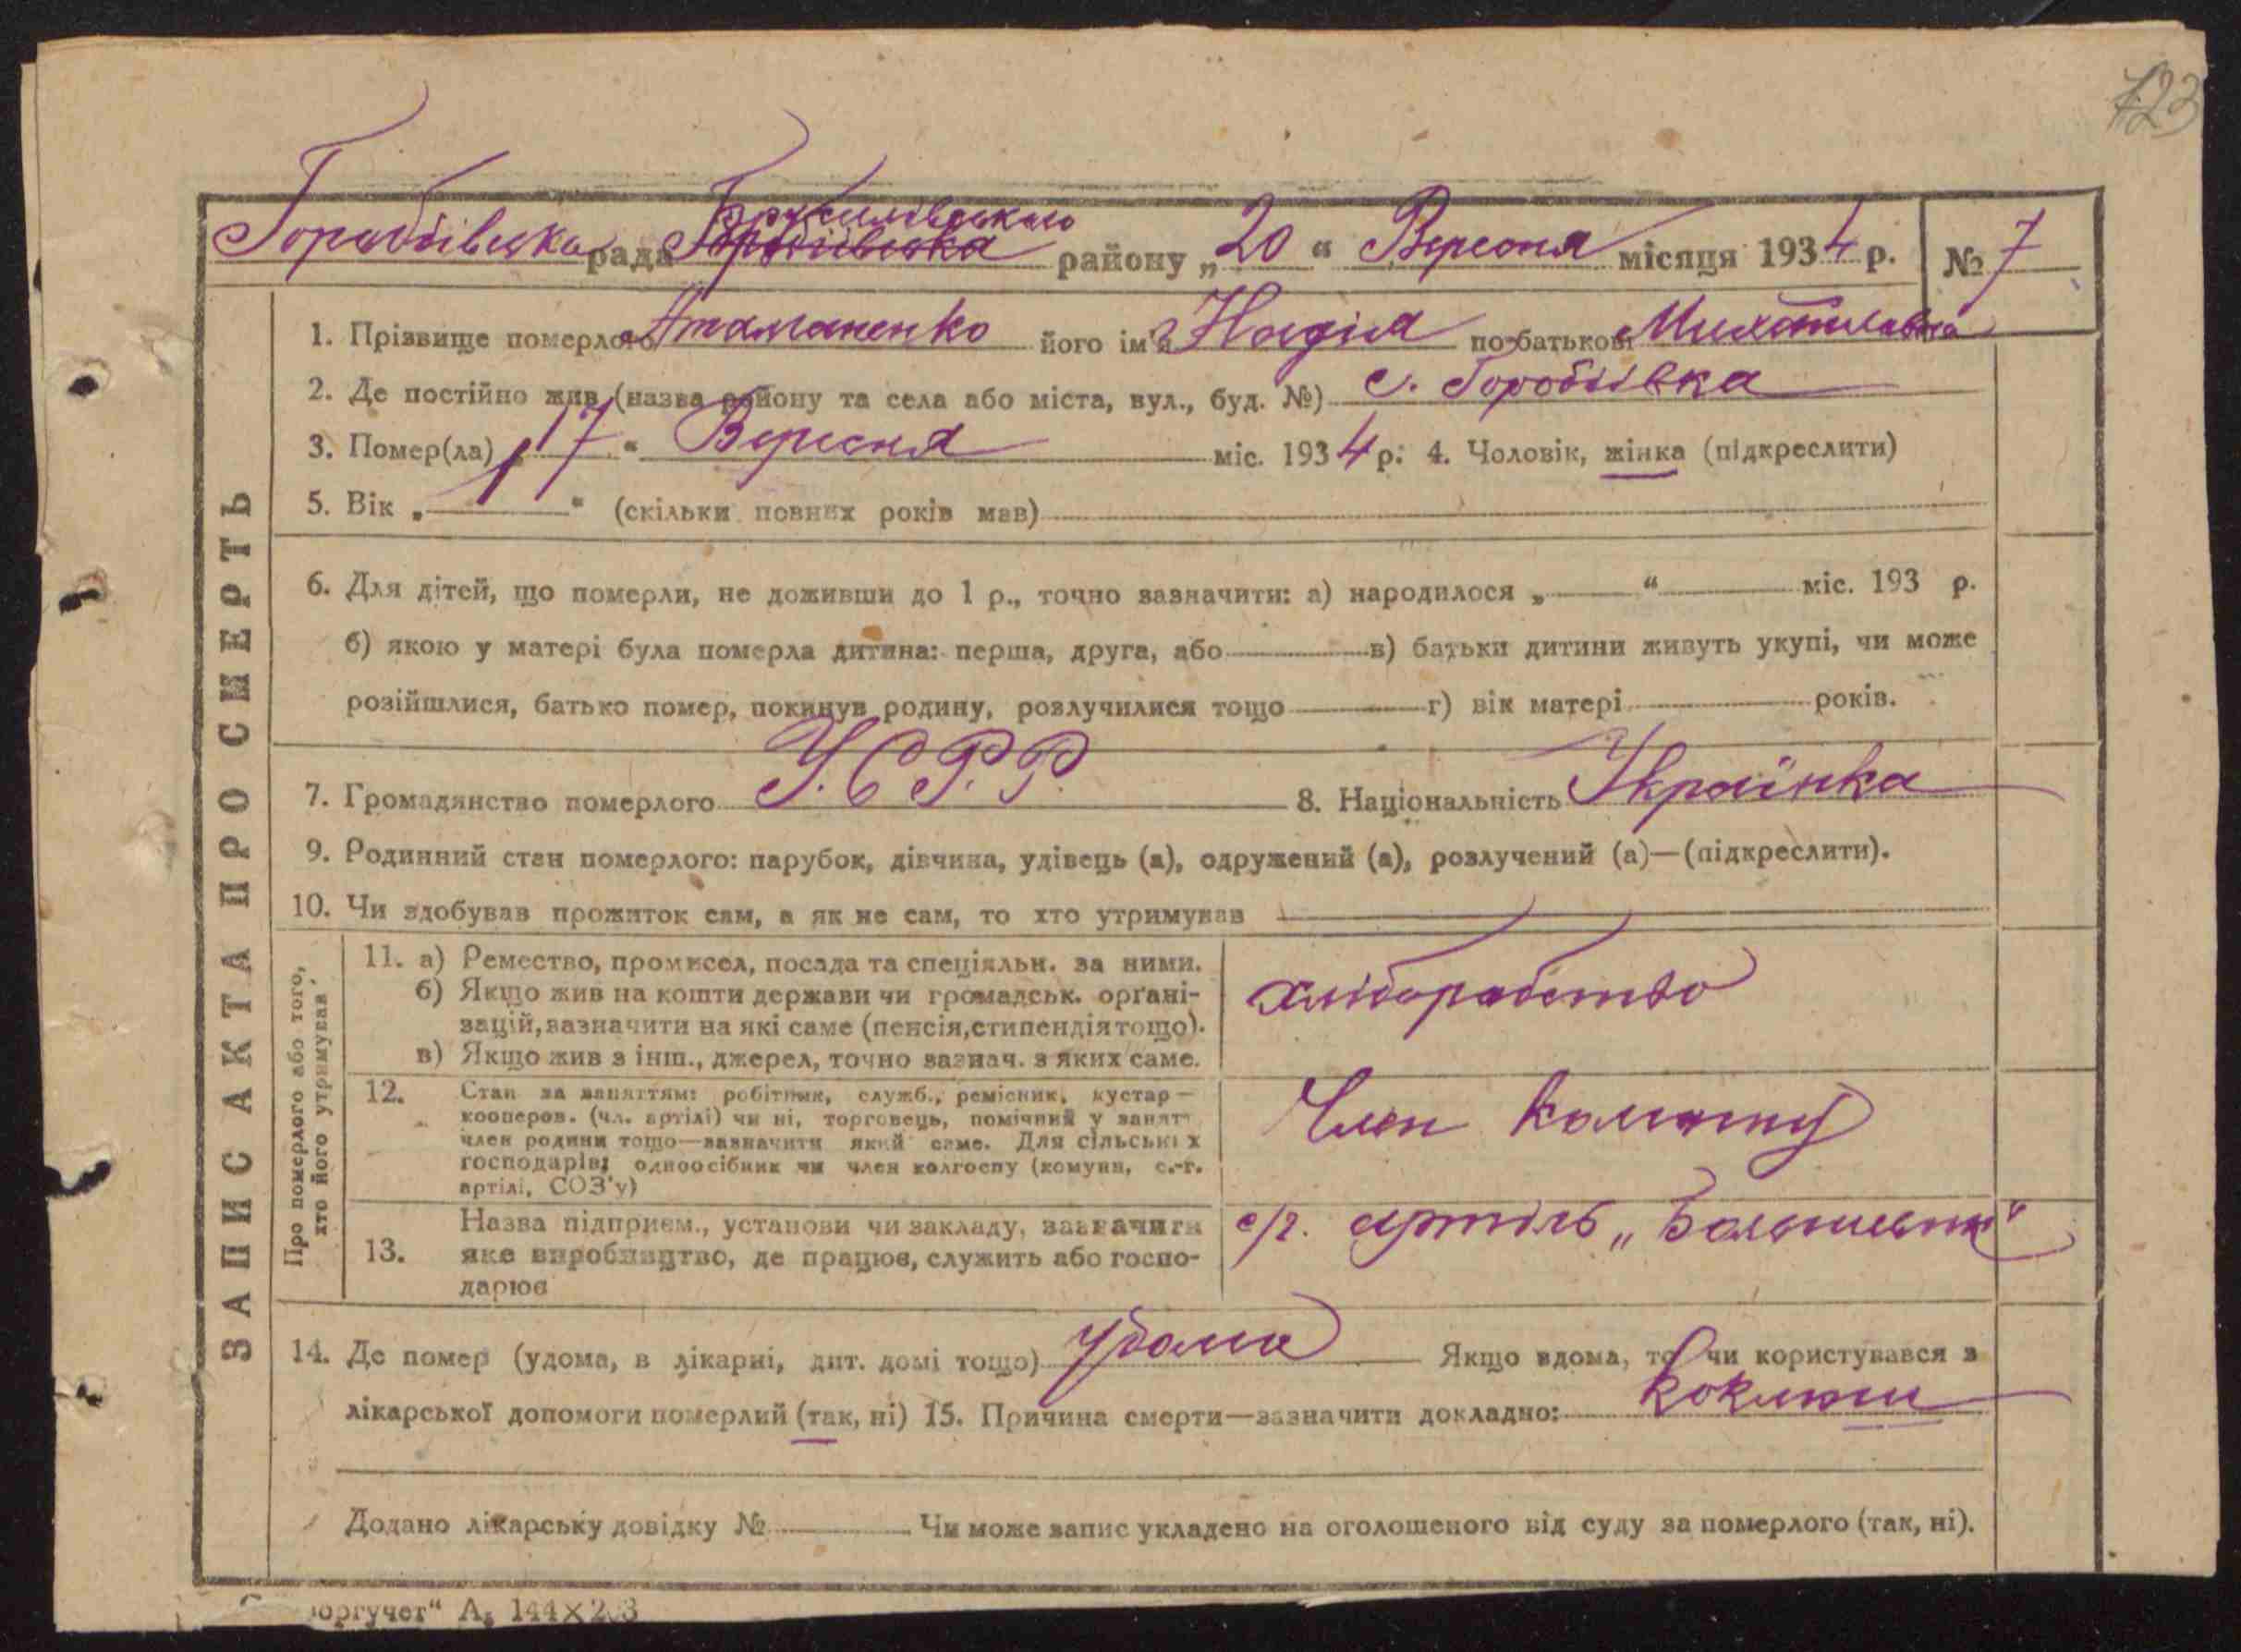 123
Горобіївська рада Брусилівського ~~Горобіївська~~ району „20“ Вересня місяця 1934 р. № 7
ЗАПИС АКТА ПРО СМЕРТЬ
1. Прізвище померлого Атаманенко його ім'я Надія по-батькові Михайлівна
2. Де постійно жив (назва району та села або міста, вул., буд. №) с. Горобіївка
3. Помер(ла) „17“ Вересня міс. 1934 р. 4. Чоловік, жінка (підкреслити)
5. Вік „1“ (скільки повних років мав)
6. Для дітей, що померли, не доживши до 1 р., точно зазначити: а) народилося „ “ міс. 193 р.
б) якою у матері була померла дитина: перша, друга, або в) батьки дитини живуть укупі, чи може
розійшлися, батько помер, покинув родину, розлучилися тощо г) вік матері років.
7. Громадянство померлого У.С.Р.Р. 8. Національність Українка
9. Родинний стан померлого: парубок, дівчина, удівець (а), одружений (а), розлучений (а)—(підкреслити).
10. Чи здобував прожиток сам, а як не сам, то хто утримував
Про померлого або того,
хто його утримував
11. а) Ремество, промисел, посада та спеціяльн. за ними.
б) Якщо жив на кошти держави чи громадськ. органі-
зацій, зазначити на які саме (пенсія, стипендія тощо).
в) Якщо жив з інш., джерел, точно зазнач. з яких саме.
хліборобство
12. Стан за заняттям: робітник, служб., ремісник, кустар—
кооперов. (чл. артілі) чи ні, торговець, помічний у занят.
член родини тощо—зазначити який саме. Для сільських
господарів: одноосібник чи член колгоспу (комуни, с.-г.
артілі, СОЗ'у)
Член
13. Назва підприєм., установи чи закладу, зазначити
яке виробництво, де працює, служить або госпо-
дарює
с/г. артіль „Большевик“
14. Де помер (удома, в лікарні, дит. домі тощо) удома Якщо вдома, то чи користувався з
лікарської допомоги померлий (так, ні) 15. Причина смерти—зазначити докладно: коклюш
Додано лікарську довідку № Чи може запис укладено на оголошеного від суду за померлого (так, ні).
оргучет“ А₅ 144×203